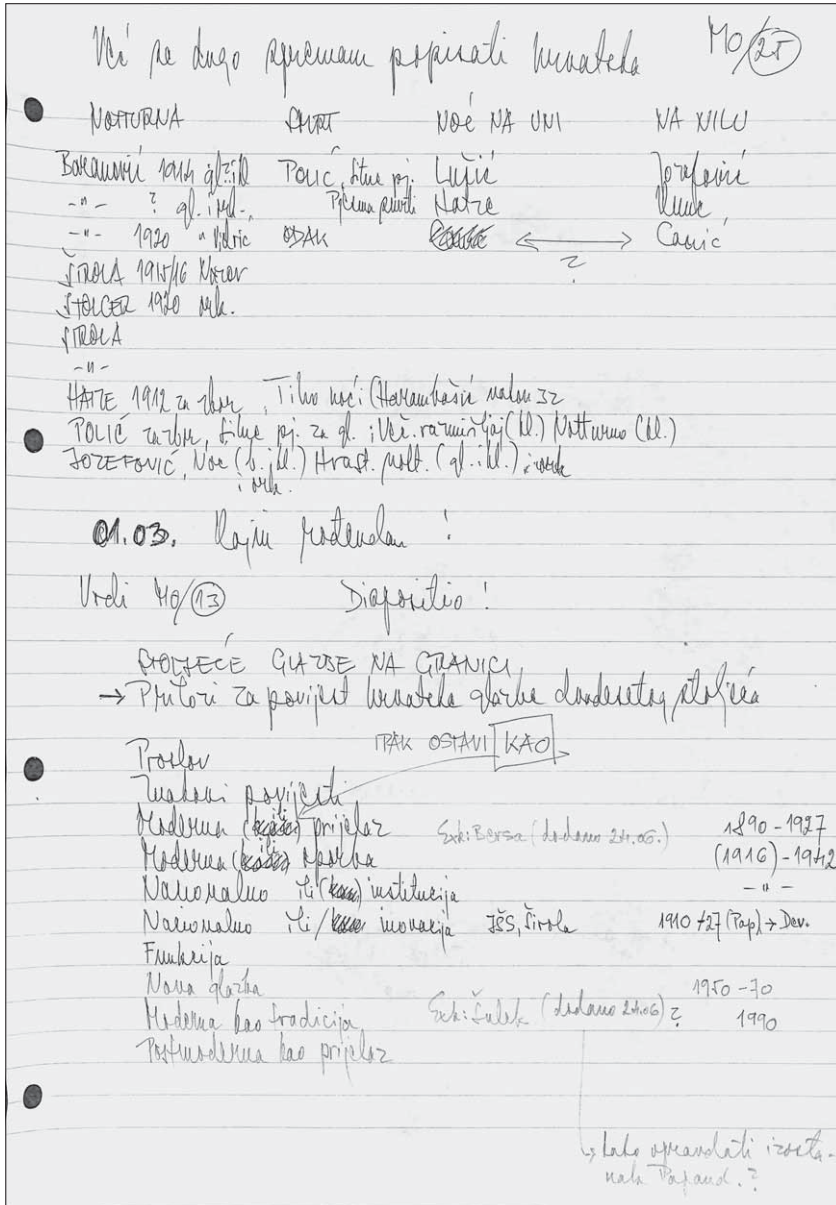 Već se dugo spremam popisati hrvatska MO/25
NOTTURNA SMRT NOĆ NA UNI NA NILU
Baranović 1914 gl. i kl Polić, Sitne pj. Lujić Jozefović
-"- ? gl. i ork-, Pjesma smrti Hatze
-"- 1920 " Vidrić ODAK ⟷ Canić
?
ŠIROLA 1915/16
ŠTOLCER 1920 ork.
ŠIROLA
-"-
HATZE 1912 za zbor, Tiho noći (Harambašić
POLIĆ za zbor, Sitne pj. za gl. i Več. razmišljaj (kl.) Notturno (kl.)
JOZEFOVIĆ, Noć (b. i kl.) Hrast. nott. (gl. i kl.) i ork
i ork.
01.03. rođendan !
Vidi MO/13 Diapositio!
STOLJEĆE GLAZBE NA GRANICI
→ Prilozi za povijest hrvatske glazbe dvadesetog stoljeća
IPAK OSTAVI KAO
Proslov
Znakovi povijesti
Moderna (kao) prijelaz Exk: Bersa (dodano 24.06.) 1890-1927
Moderna (kao) oporba (1916)-1942
Nacionalno ili (kao) institucija -"-
Nacionalno ili/kao inovacija JŠS, Širola 1910 +27 (Pap) → Dev.
Funkcija
Nova glazba 1950-70
Moderna kao tradicija Exk: Šulek (dodano 24.06) ? 1990
Postmoderna kao prijelaz
↳ kako opravdati izosta-
nak Papand. ?